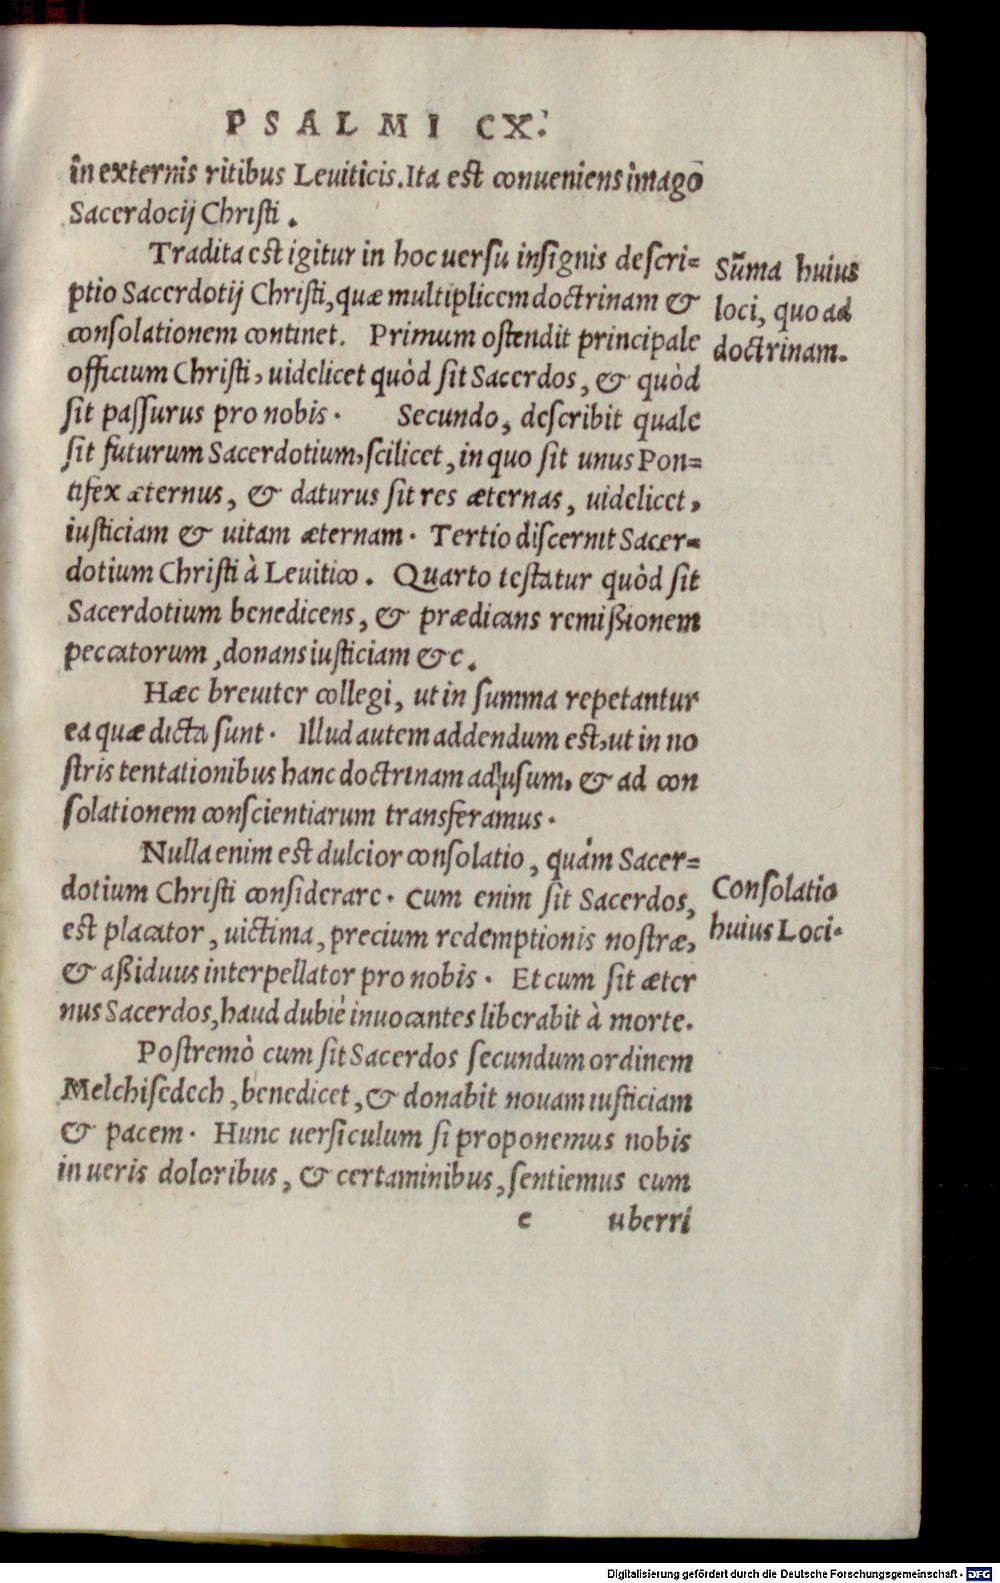 PSALMI CX.
in externis ritibus Leuiticis. Ita est conueniens imago
Sacerdocij Christi.
Tradita est igitur in hoc uersu insignis descri=
ptio Sacerdotij Christi, quæ multiplicem doctrinam &
consolationem continet. Primum ostendit principale
officium Christi, uidelicet quòd sit Sacerdos, & quòd
sit passurus pro nobis. Secundo, describit quale
sit futurum Sacerdotium, scilicet, in quo sit unus Pon=
tifex æternus, & daturus sit res æternas, uidelicet,
iusticiam & uitam æternam. Tertio discernit Sacer=
dotium Christi à Leuitico. Quarto testatur quòd sit
Sacerdotium benedicens, & prædicans remißionem
peccatorum, donans iusticiam &c.
Sum̃a huius
loci, quo ad
doctrinam.
Hæc breuiter collegi, ut in summa repetantur
ea quæ dicta sunt. Illud autem addendum est, ut in no
stris tentationibus hanc doctrinam ad usum, & ad con
solationem conscientiarum transferamus.
Nulla enim est dulcior consolatio, quàm Sacer=
dotium Christi considerare. Cum enim sit Sacerdos,
est placator, uictima, precium redemptionis nostræ,
& aßiduus interpellator pro nobis. Et cum sit æter
nus Sacerdos, haud dubiè inuocantes liberabit à morte.
Consolatio
huius Loci.
Postremò cum sit Sacerdos secundum ordinem
Melchisedech, benedicet, & donabit nouam iusticiam
& pacem. Hunc uersiculum si proponemus nobis
in ueris doloribus, & certaminibus, sentiemus cum
e uberri
Digitalisierung gefördert durch die Deutsche Forschungsgemeinschaft - DFG